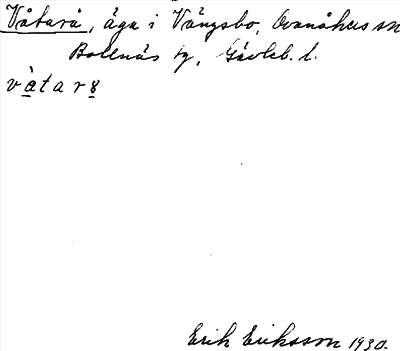 Våtarå, äga i Vängsbo, Ovanåkers sn
Bollnäs tg, Gävleb. l.
vàtar8
Erik Eriksson 1930.